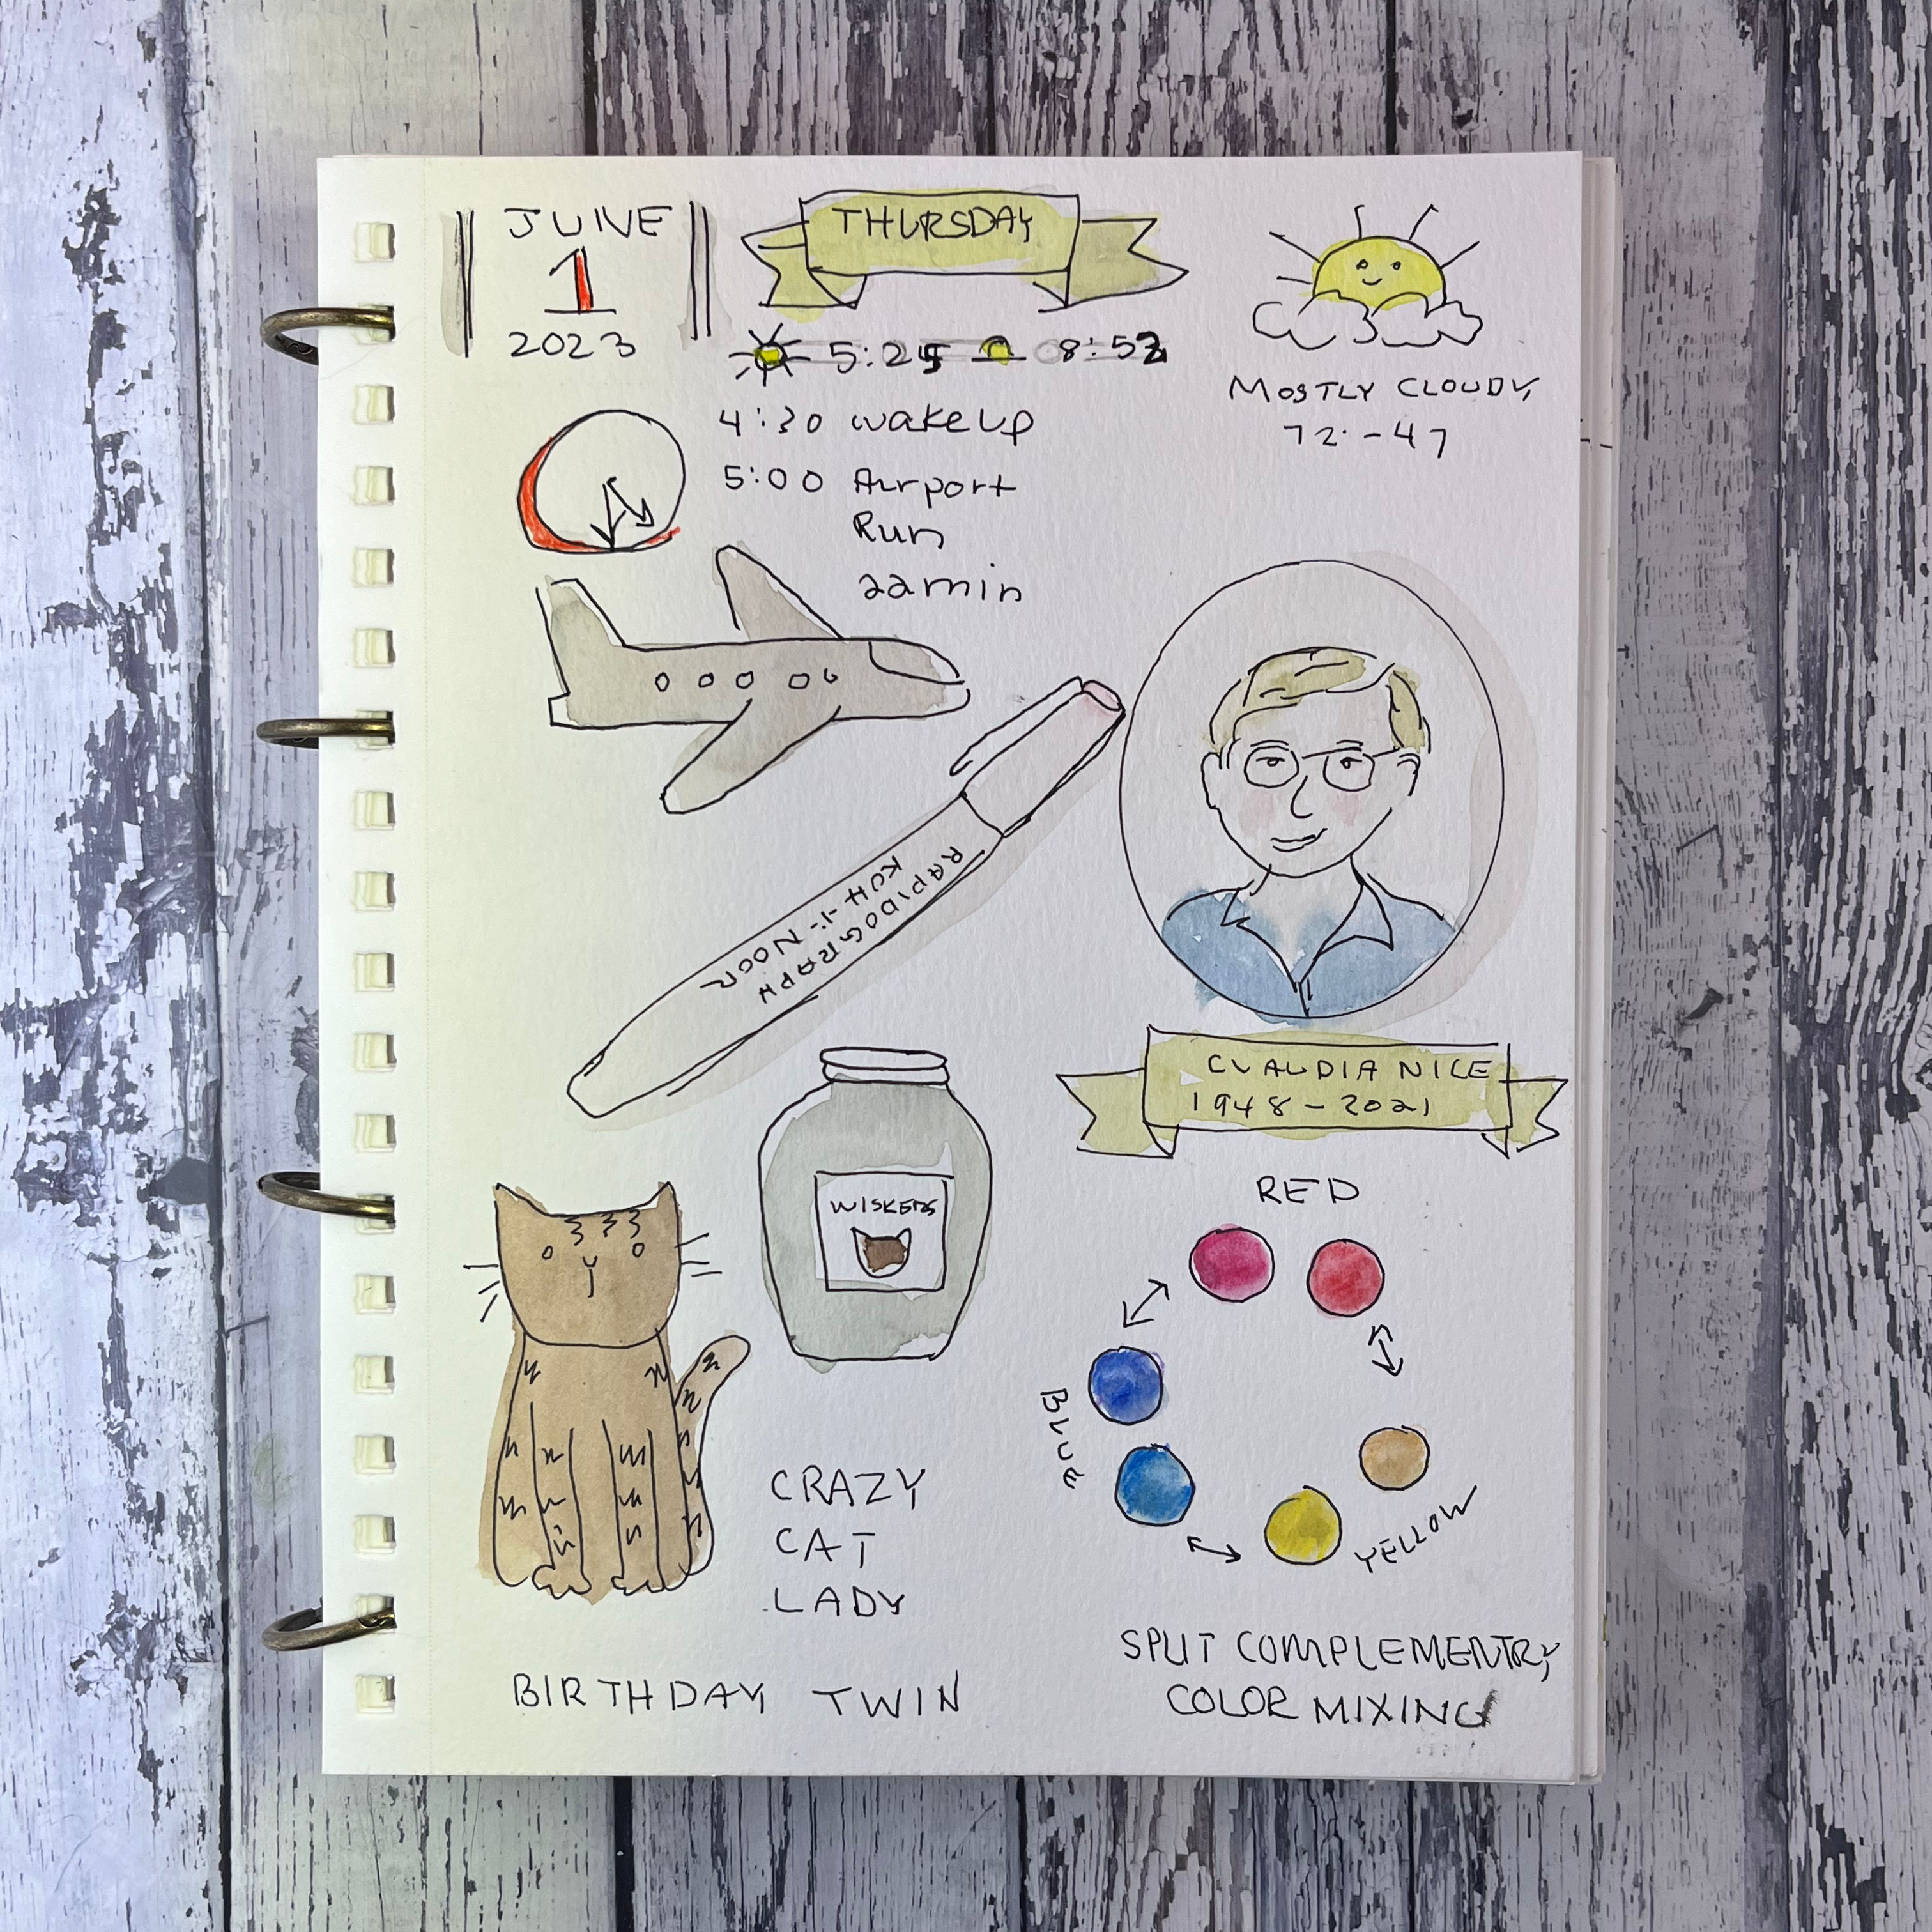 JUNE
1
2023
THURSDAY
5:25 8:52
MOSTLY CLOUDY
72·-47
4:30 wake up
5:00 Airport
Run
22min
RAPIDOGRAPH
KOH-I-NOOR
CLAUDIA NICE
1948-2021
WISKERS
CRAZY
CAT
LADY
BIRTHDAY TWIN
RED
BLUE
YELLOW
SPLIT COMPLEMENTRY
COLOR MIXING